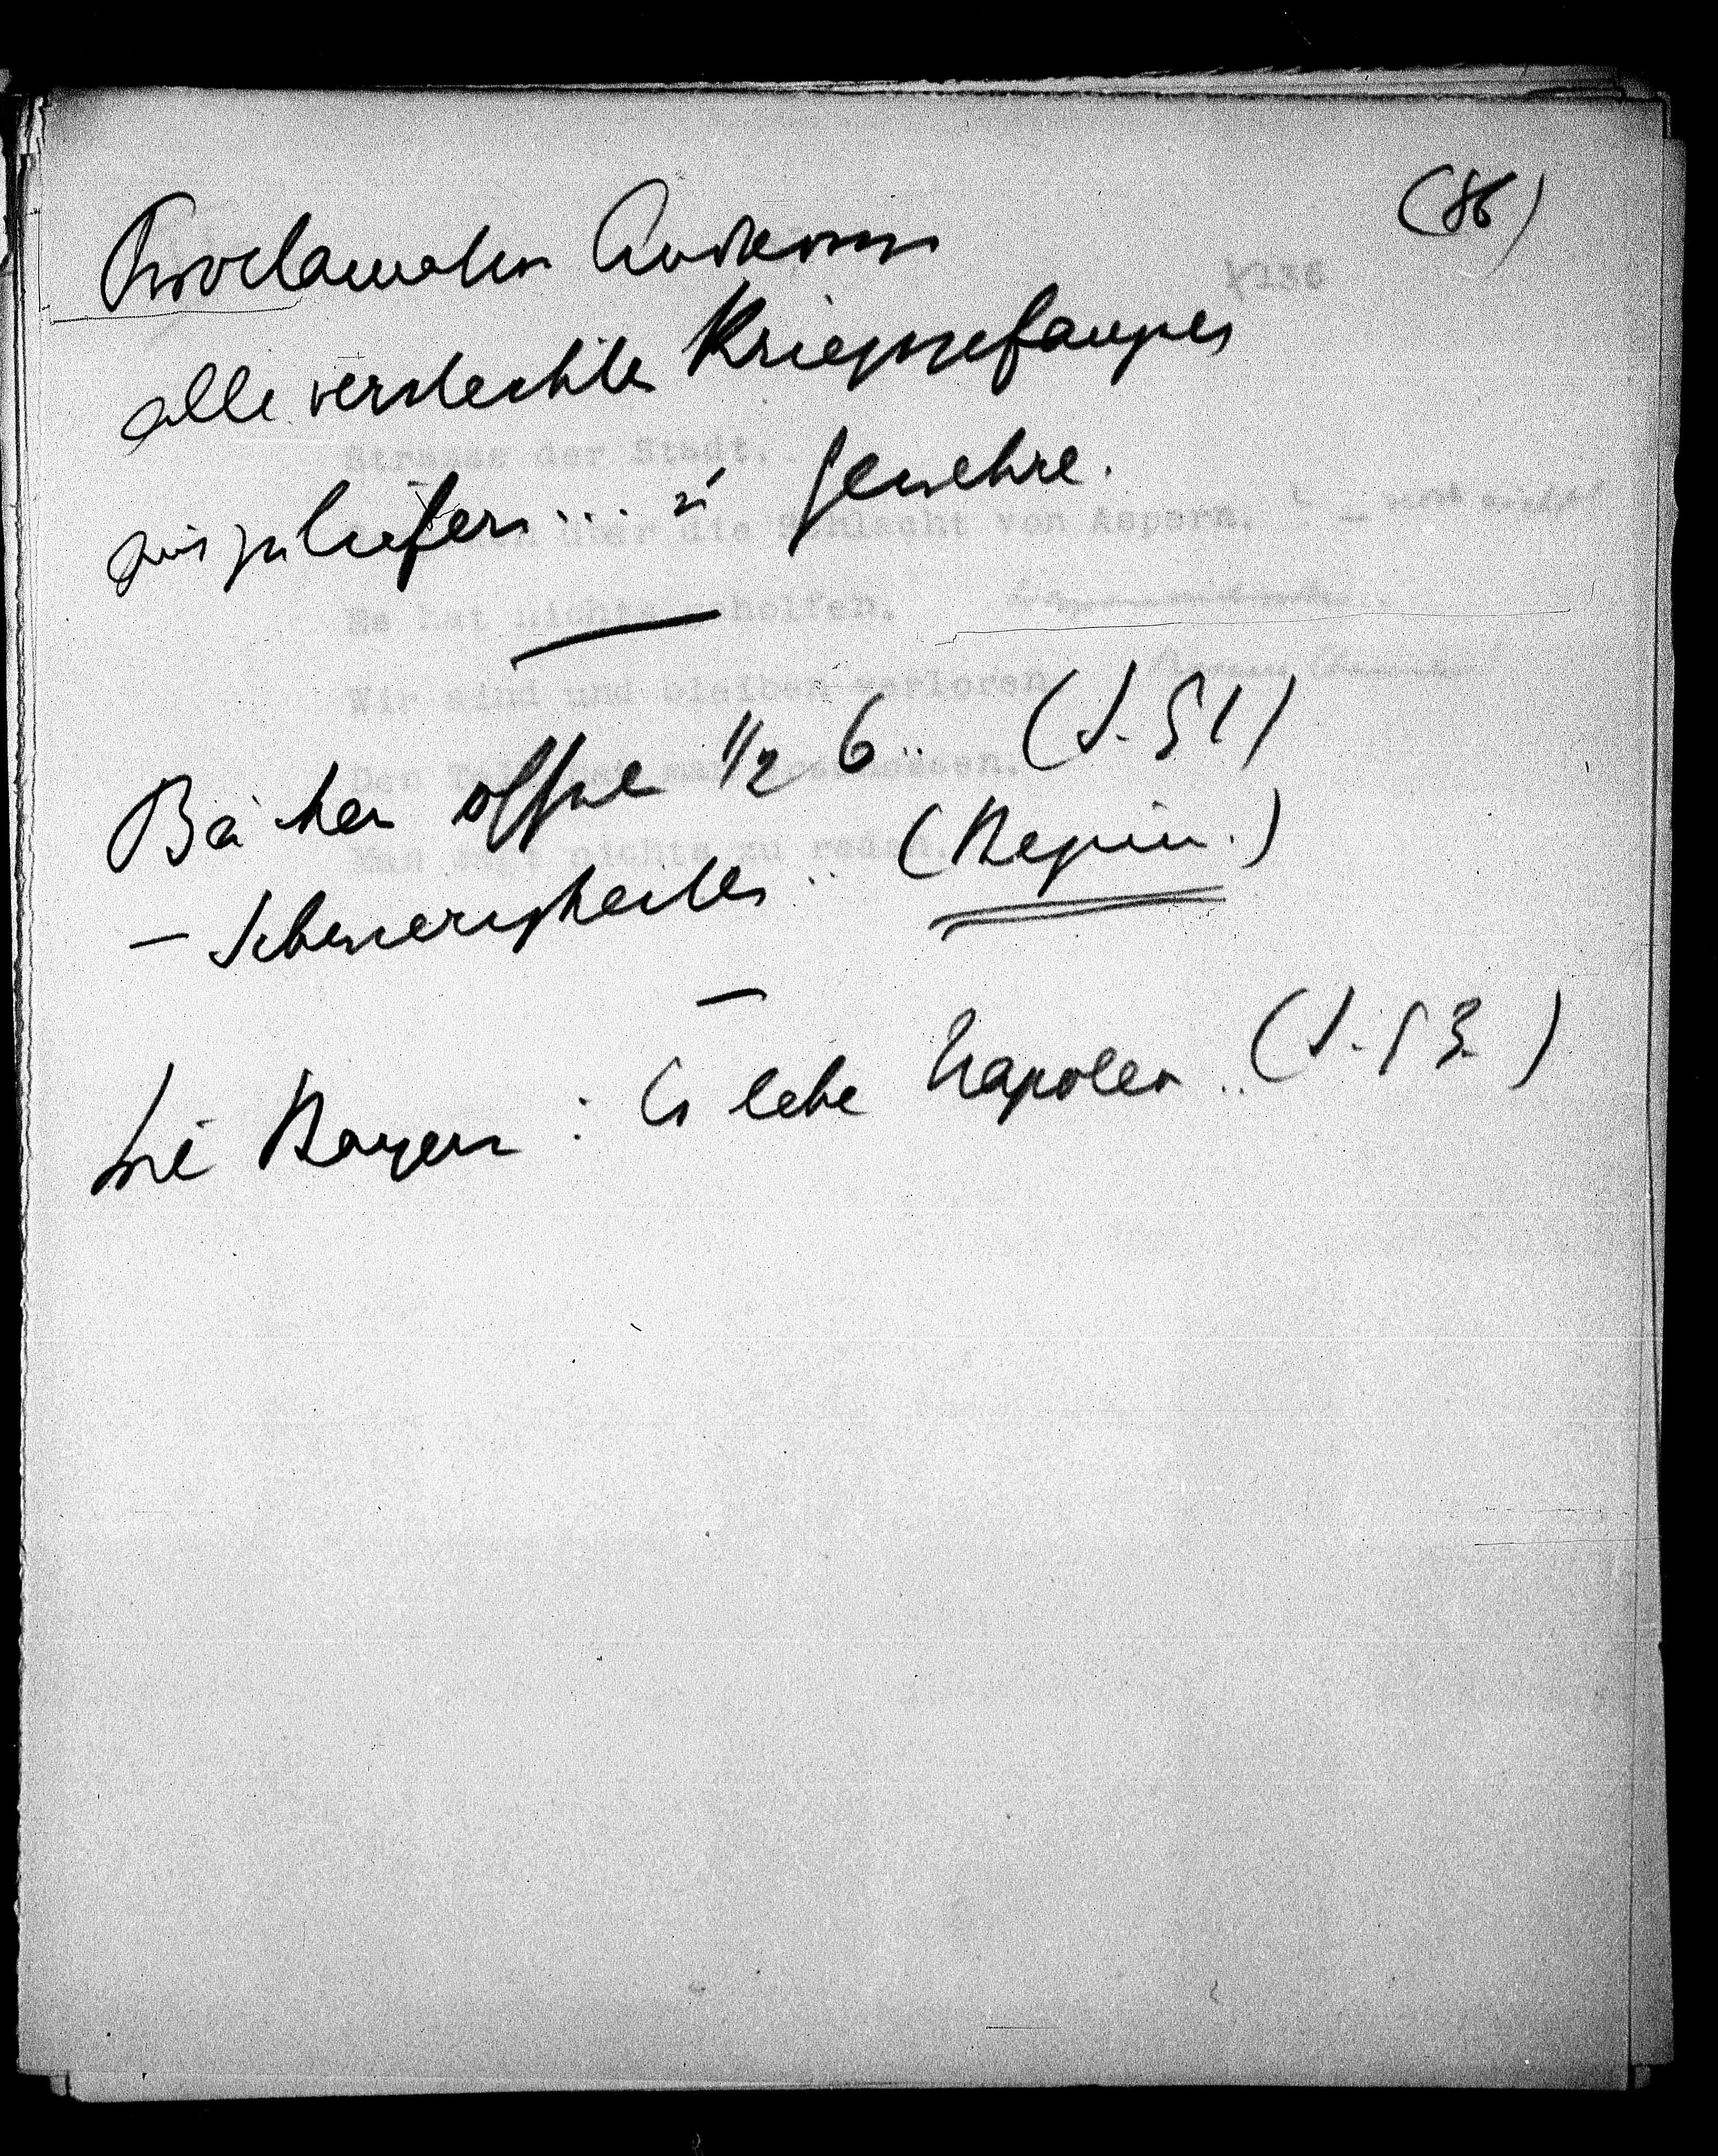 (86)
Proclamation Andreossy
alle versteckten Kriegsgefangnen
auszuliefern... u Gewehre.
Bäcker offne ½ 6.. (S. 51)
– Schwierigkeiten.. (Regin.)
Die Bayern: Es lebe Napoleon.. (S. 53)
136
Strasse der Stadt..
über die Schlacht von Aspern.
Es hat nichts geholfen.
Wir sind und bleiben verloren
Man wagt nichts zu reden.